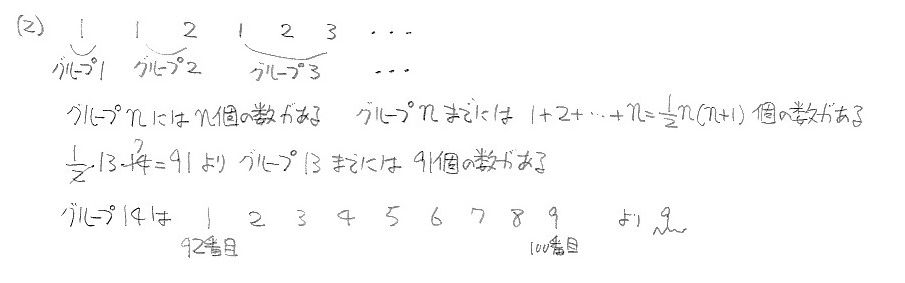 (2) 1 1 2 1 2 3 ...
グループ1 グループ2 グループ3 ...
グループnにはn個の数がある グループnまでには 1+2+…+n=1/2n(n+1) 個の数がある
1/2・13・14 7=91より グループ13までには 91個の数がある
グループ14は 1 2 3 4 5 6 7 8 9 より 9
92番目 100番目